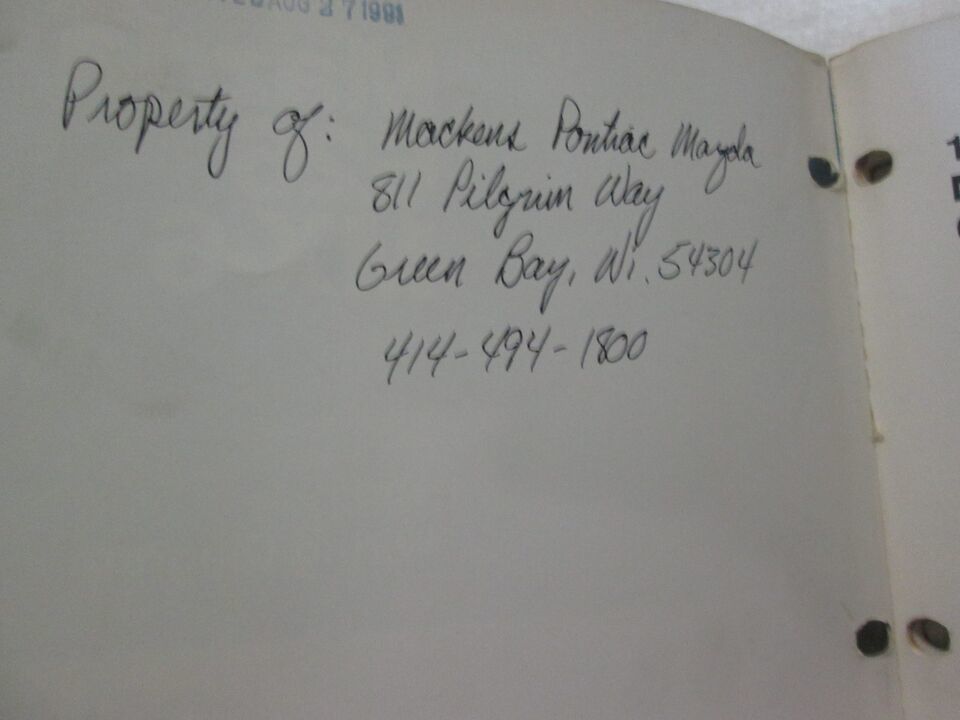 AUG 27 1991
Property of: Mackens Pontiac Mazda
811 Pilgrim Way
Green Bay, Wi. 54304
414-494-1800